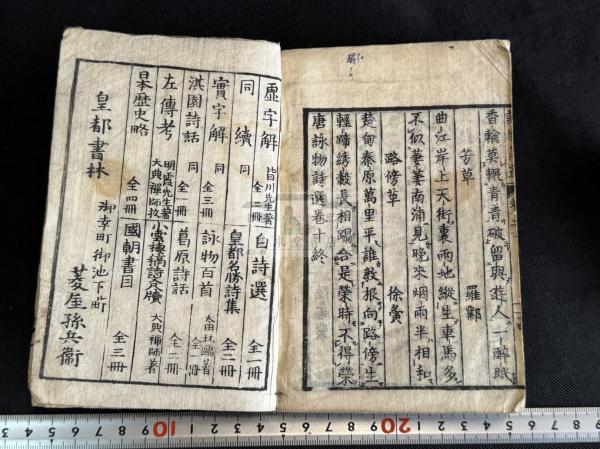 香輪莫輾青青破留與遊人一醉眠
芳草
羅鄴
曲江岸上天街裏兩地縱生車馬多
不似萋萋南浦見晚來烟雨半相和
路傍草
徐夤
楚甸秦原萬里平誰教根向路傍生
輕蹄綉轂長相蹋合是榮時不得榮
唐詠物詩選卷十終
虛字解 皆川先生著 全二冊
同續 同 全二冊
實字解 同 全三冊
淇園詩話 同 全一冊
左傳考 明霞先生著 大典禪師校
日本歴史略 全四冊
白詩選 全一冊
皇都名勝詩集 全二冊
詠物百首 全一冊
葛原詩話 全二冊
小雲棲稿詩 大典禪師著
國朝書目 全三冊
皇都書林
御幸町御池下ル町
菱屋孫兵衞
3 4 5 6 7 8 9 10 1 2 3 4 5 6 7 8 9 20 1 2 3 4 5